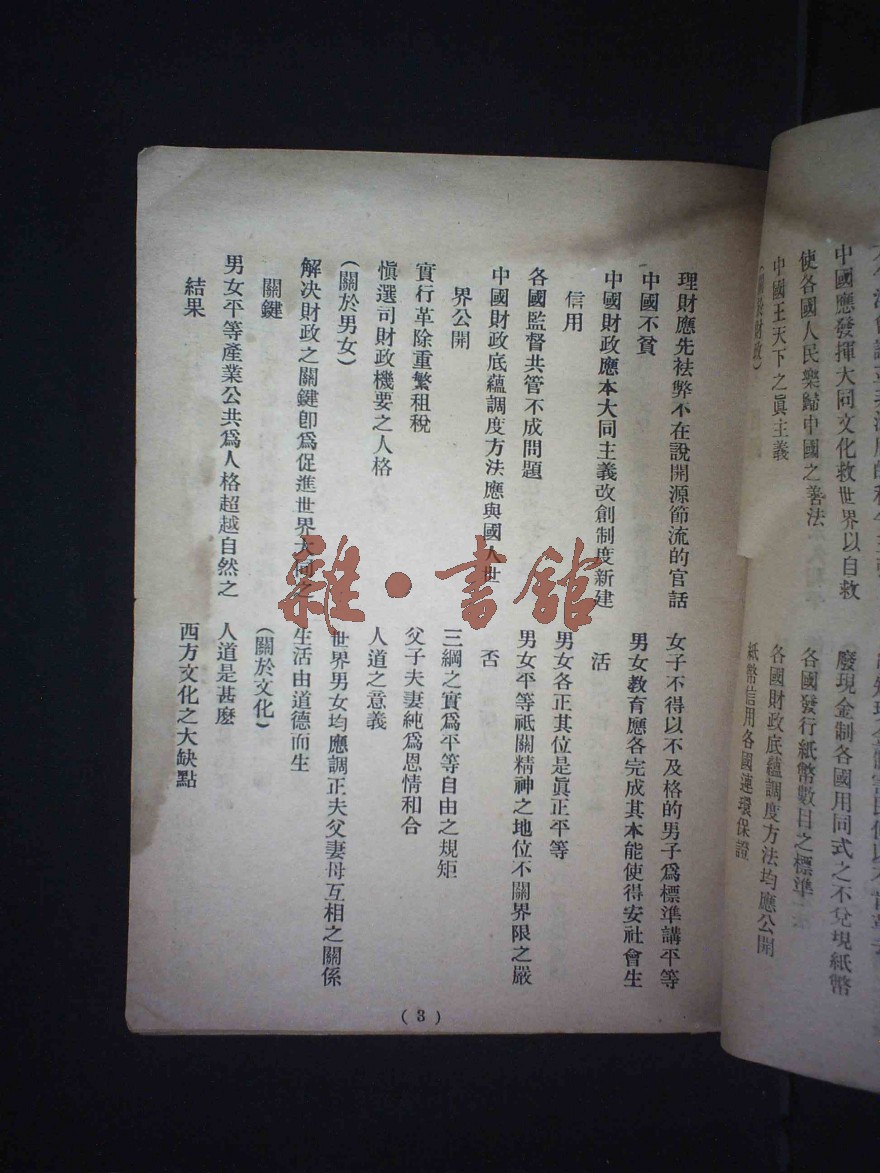 中國應發揮大同文化救世界以自救
使各國人民樂歸中國之善法
中國王天下之眞主義
（關於財政）
廢現金制各國用同式之不兌現紙幣
各國發行紙幣數目之標準
各國財政底蘊調度方法均應公開
紙幣信用各國連環保證
理財應先袪弊不在說開源節流的官話
中國不貧
中國財政應本大同主義改創制度新建
信用
各國監督共管不成問題
中國財政底蘊調度方法應與國人世
界公開
實行革除重繁租稅
愼選司財政機要之人格
（關於男女）
解決財政之關鍵卽爲促進世界大同之
關鍵
男女平等產業公共爲人格超越自然之
結果
女子不得以不及格的男子爲標準講平等
男女敎育應各完成其本能使得安社會生
活
男女各正其位是眞正平等
男女平等祗關精神之地位不關界限之嚴
否
三綱之實爲平等自由之規矩
父子夫妻純爲恩情和合
人道之意義
世界男女均應調正夫父妻母互相之關係
生活由道德而生
（關於文化）
人道是甚麽
西方文化之大缺點
（3）
雜·書館